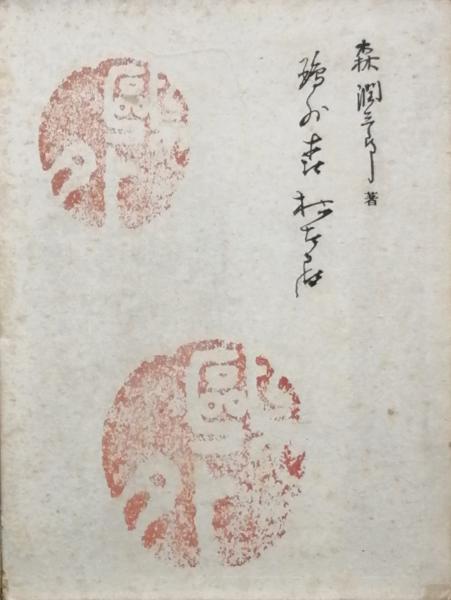 森潤三郎 著
鷗外森林太郎